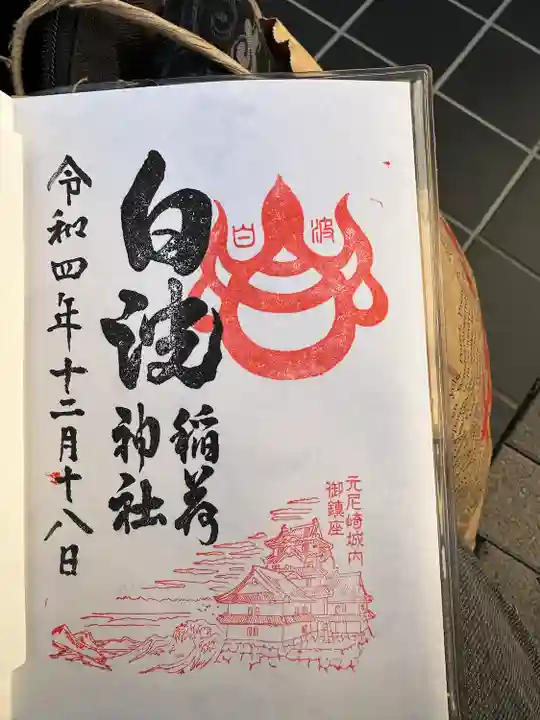 白波
元尼崎城内
御鎮座
白波
稲荷
神社
令和四年十二月十八日